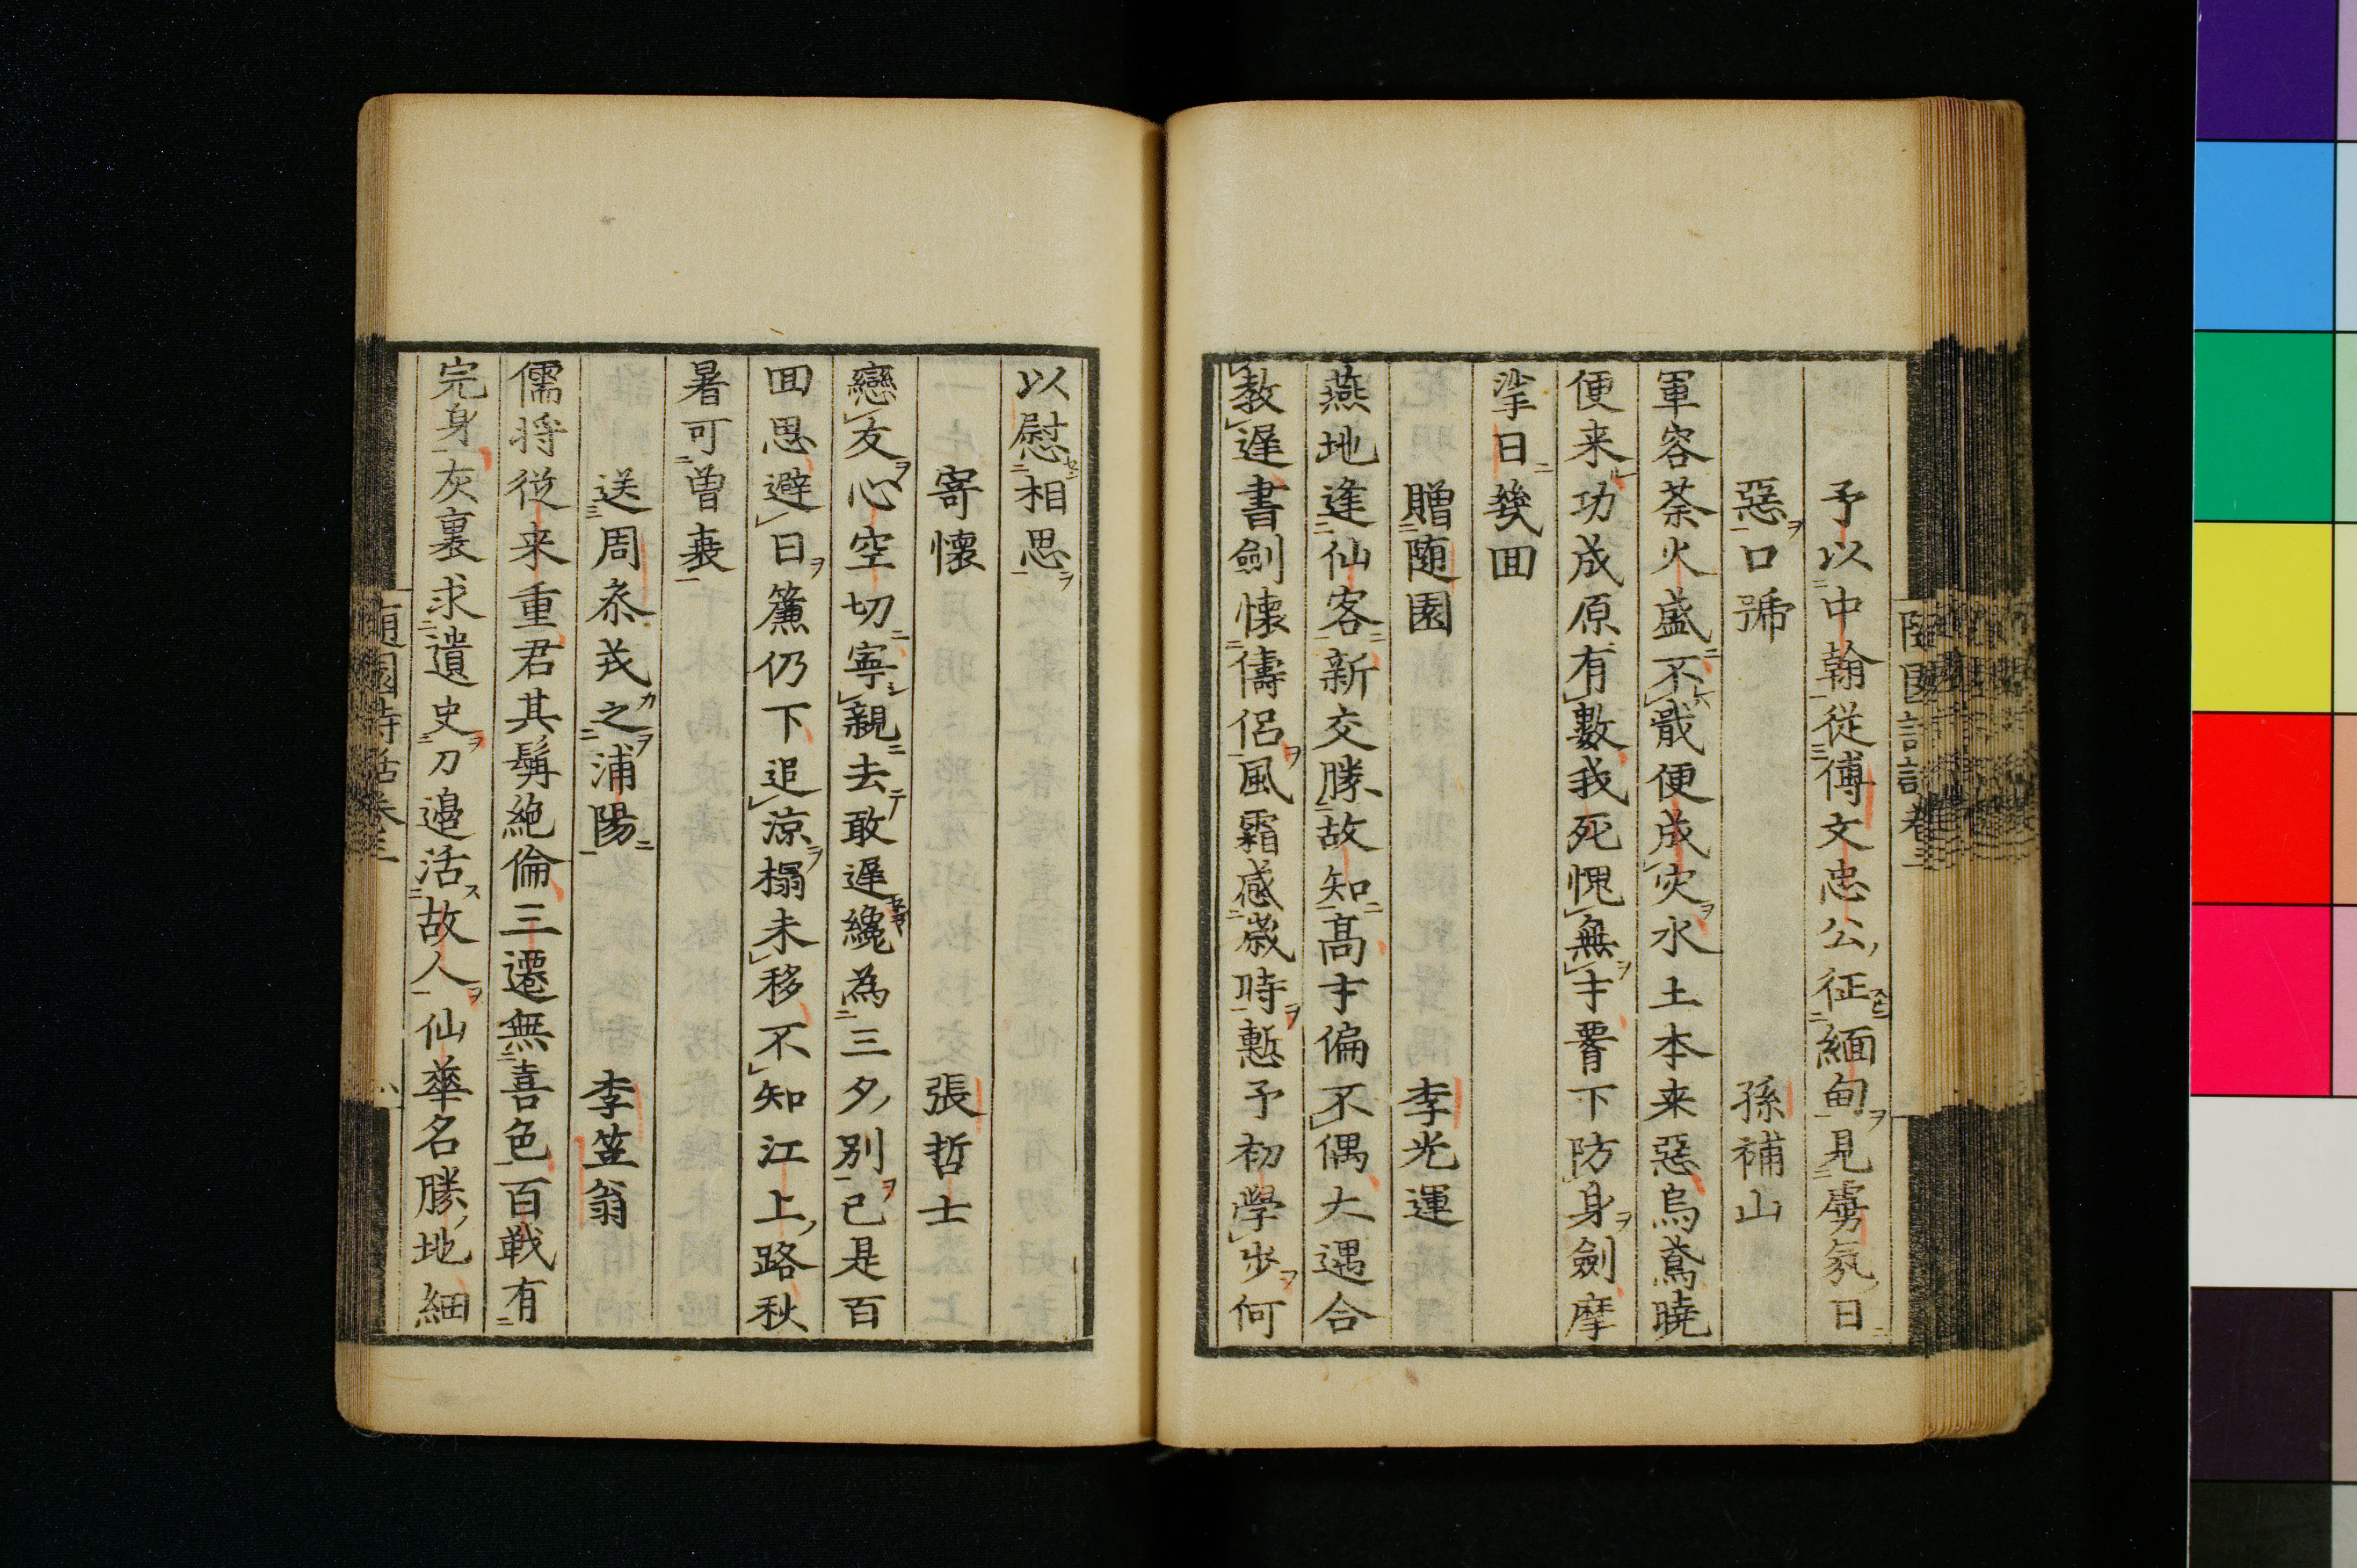 予以中翰從傅文忠公征緬甸見虜氛日
惡口號 孫補山
軍容荼火盛不戢便成灾水土本来惡烏鳶曉
便来功成原有數我死愧無才詈下防身劍摩
挲日幾囬
贈随園 李光運
燕地逢仙客新交勝故知高才偏不偶大遇合
教遅書劍懐儔侶風霜感歳時慙予初學步何
以慰相思
寄懐 張哲士
戀友心空切寧親去敢遅纔為三夕別已是百
囬思避日簾仍下追涼榻未移不知江上路秋
暑可曽衰
送周叅戎之浦陽 李笠翁
儒将從来重君其髯絶倫三遷無喜色百戦有
完身灰裏求遺史刀邉活故人仙華名勝地細
随園詩話巻三